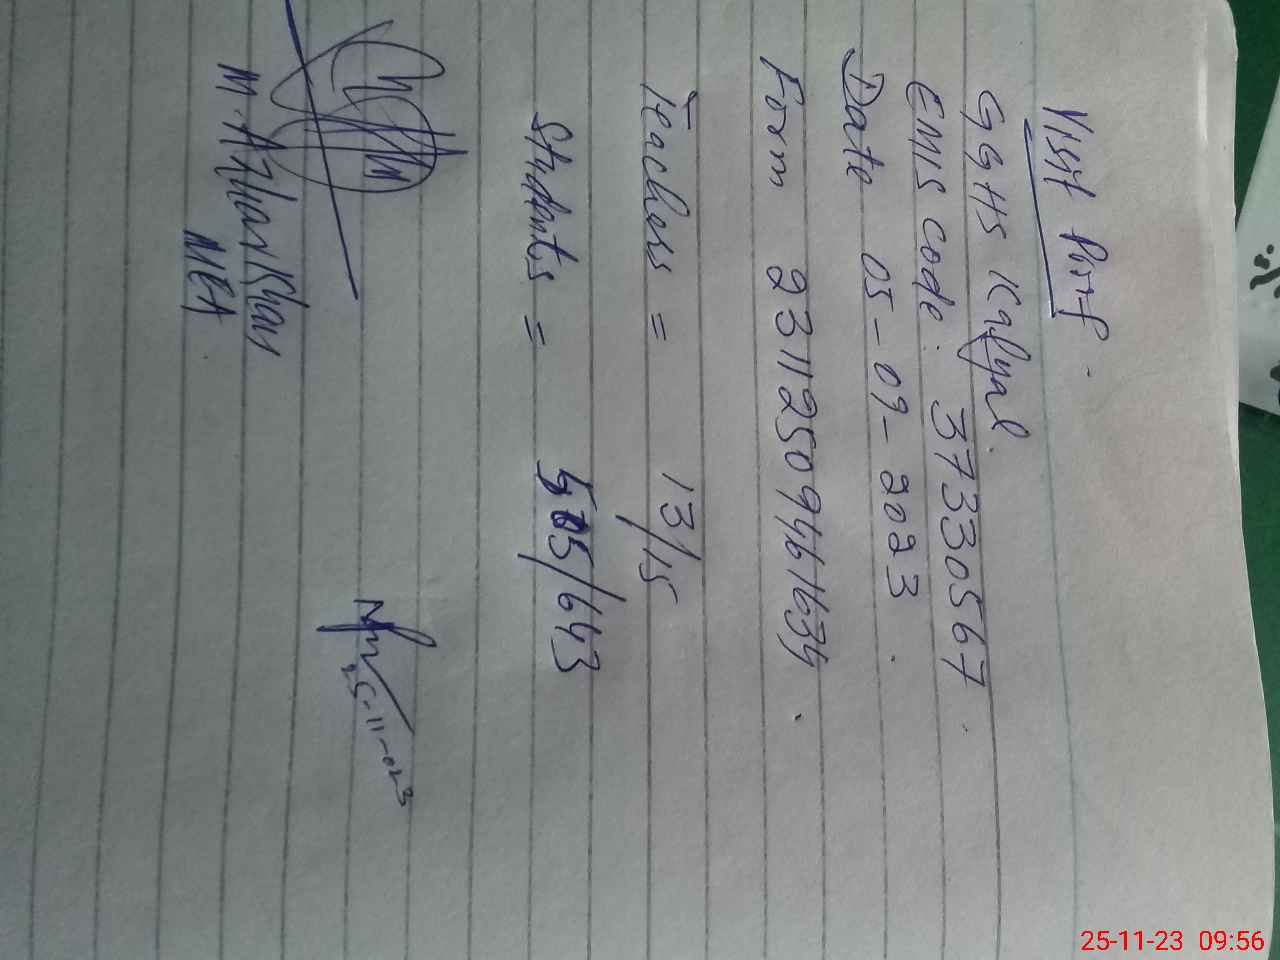 Visit Proof.
GGHS Kalyal.
EMIS code. 37330567.
Date 05-09-2023.
Form 231125094461634.
Teachers = 13/15
Students = 505/643
25-11-023
M. Azhar Khan
MEA
25-11-23 09:56